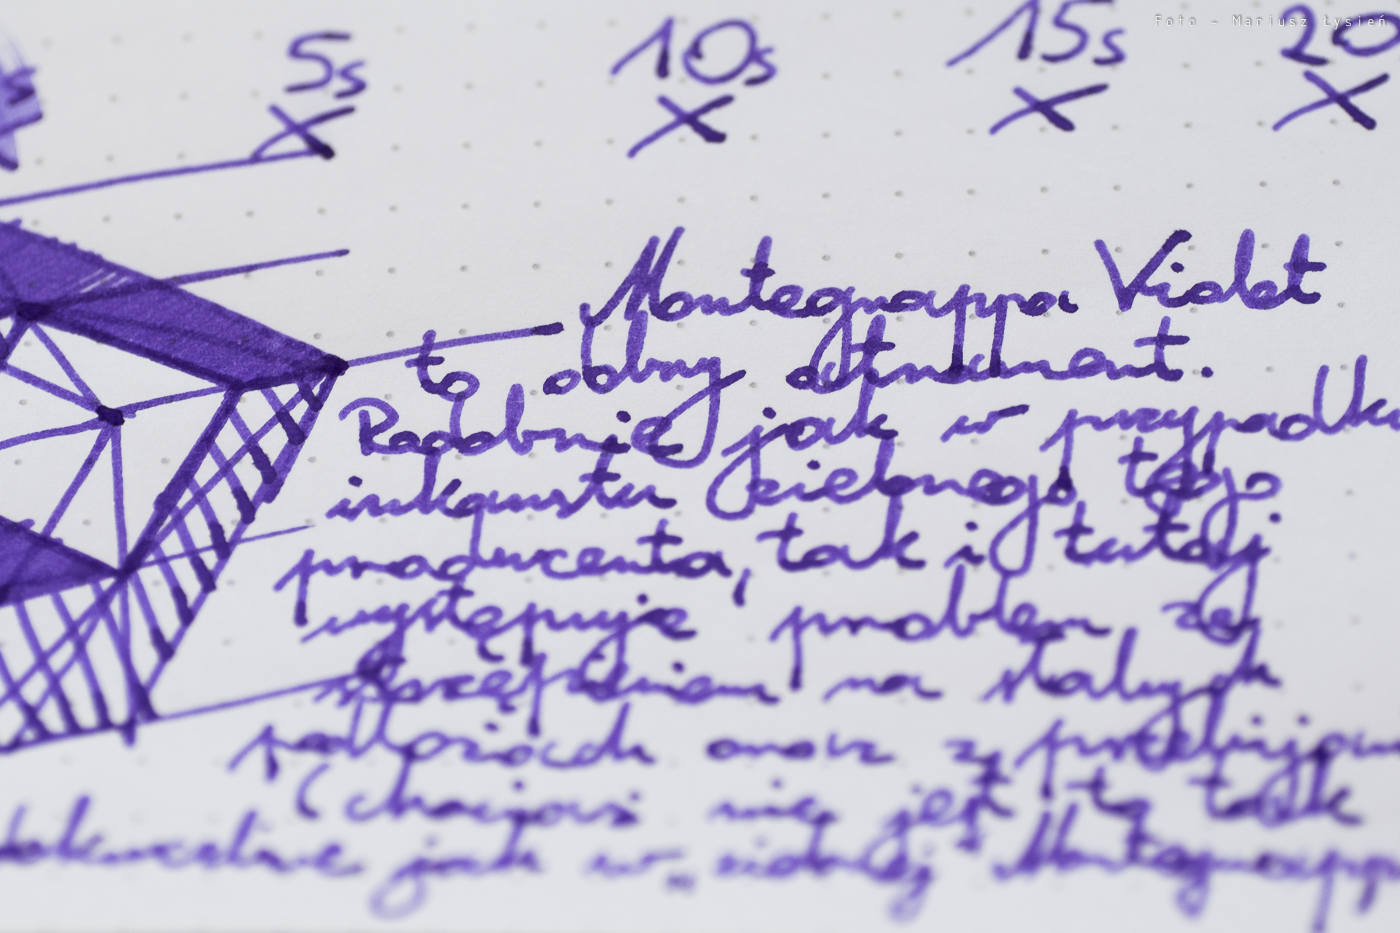 Foto - Mariusz Łysień
5s 10s 15s 20
X X X X
Montegrappa Violet
to dobry atrament.
Podobnie jak w przypadku
inkaustu zielonego tego
producenta, tak i tutaj
występuje problem ze
strzępieniem na słabych
podłożach oraz z przebijan
(chociaż nie jest to tak
dokuczliwe jak w zielonej Montegrapp